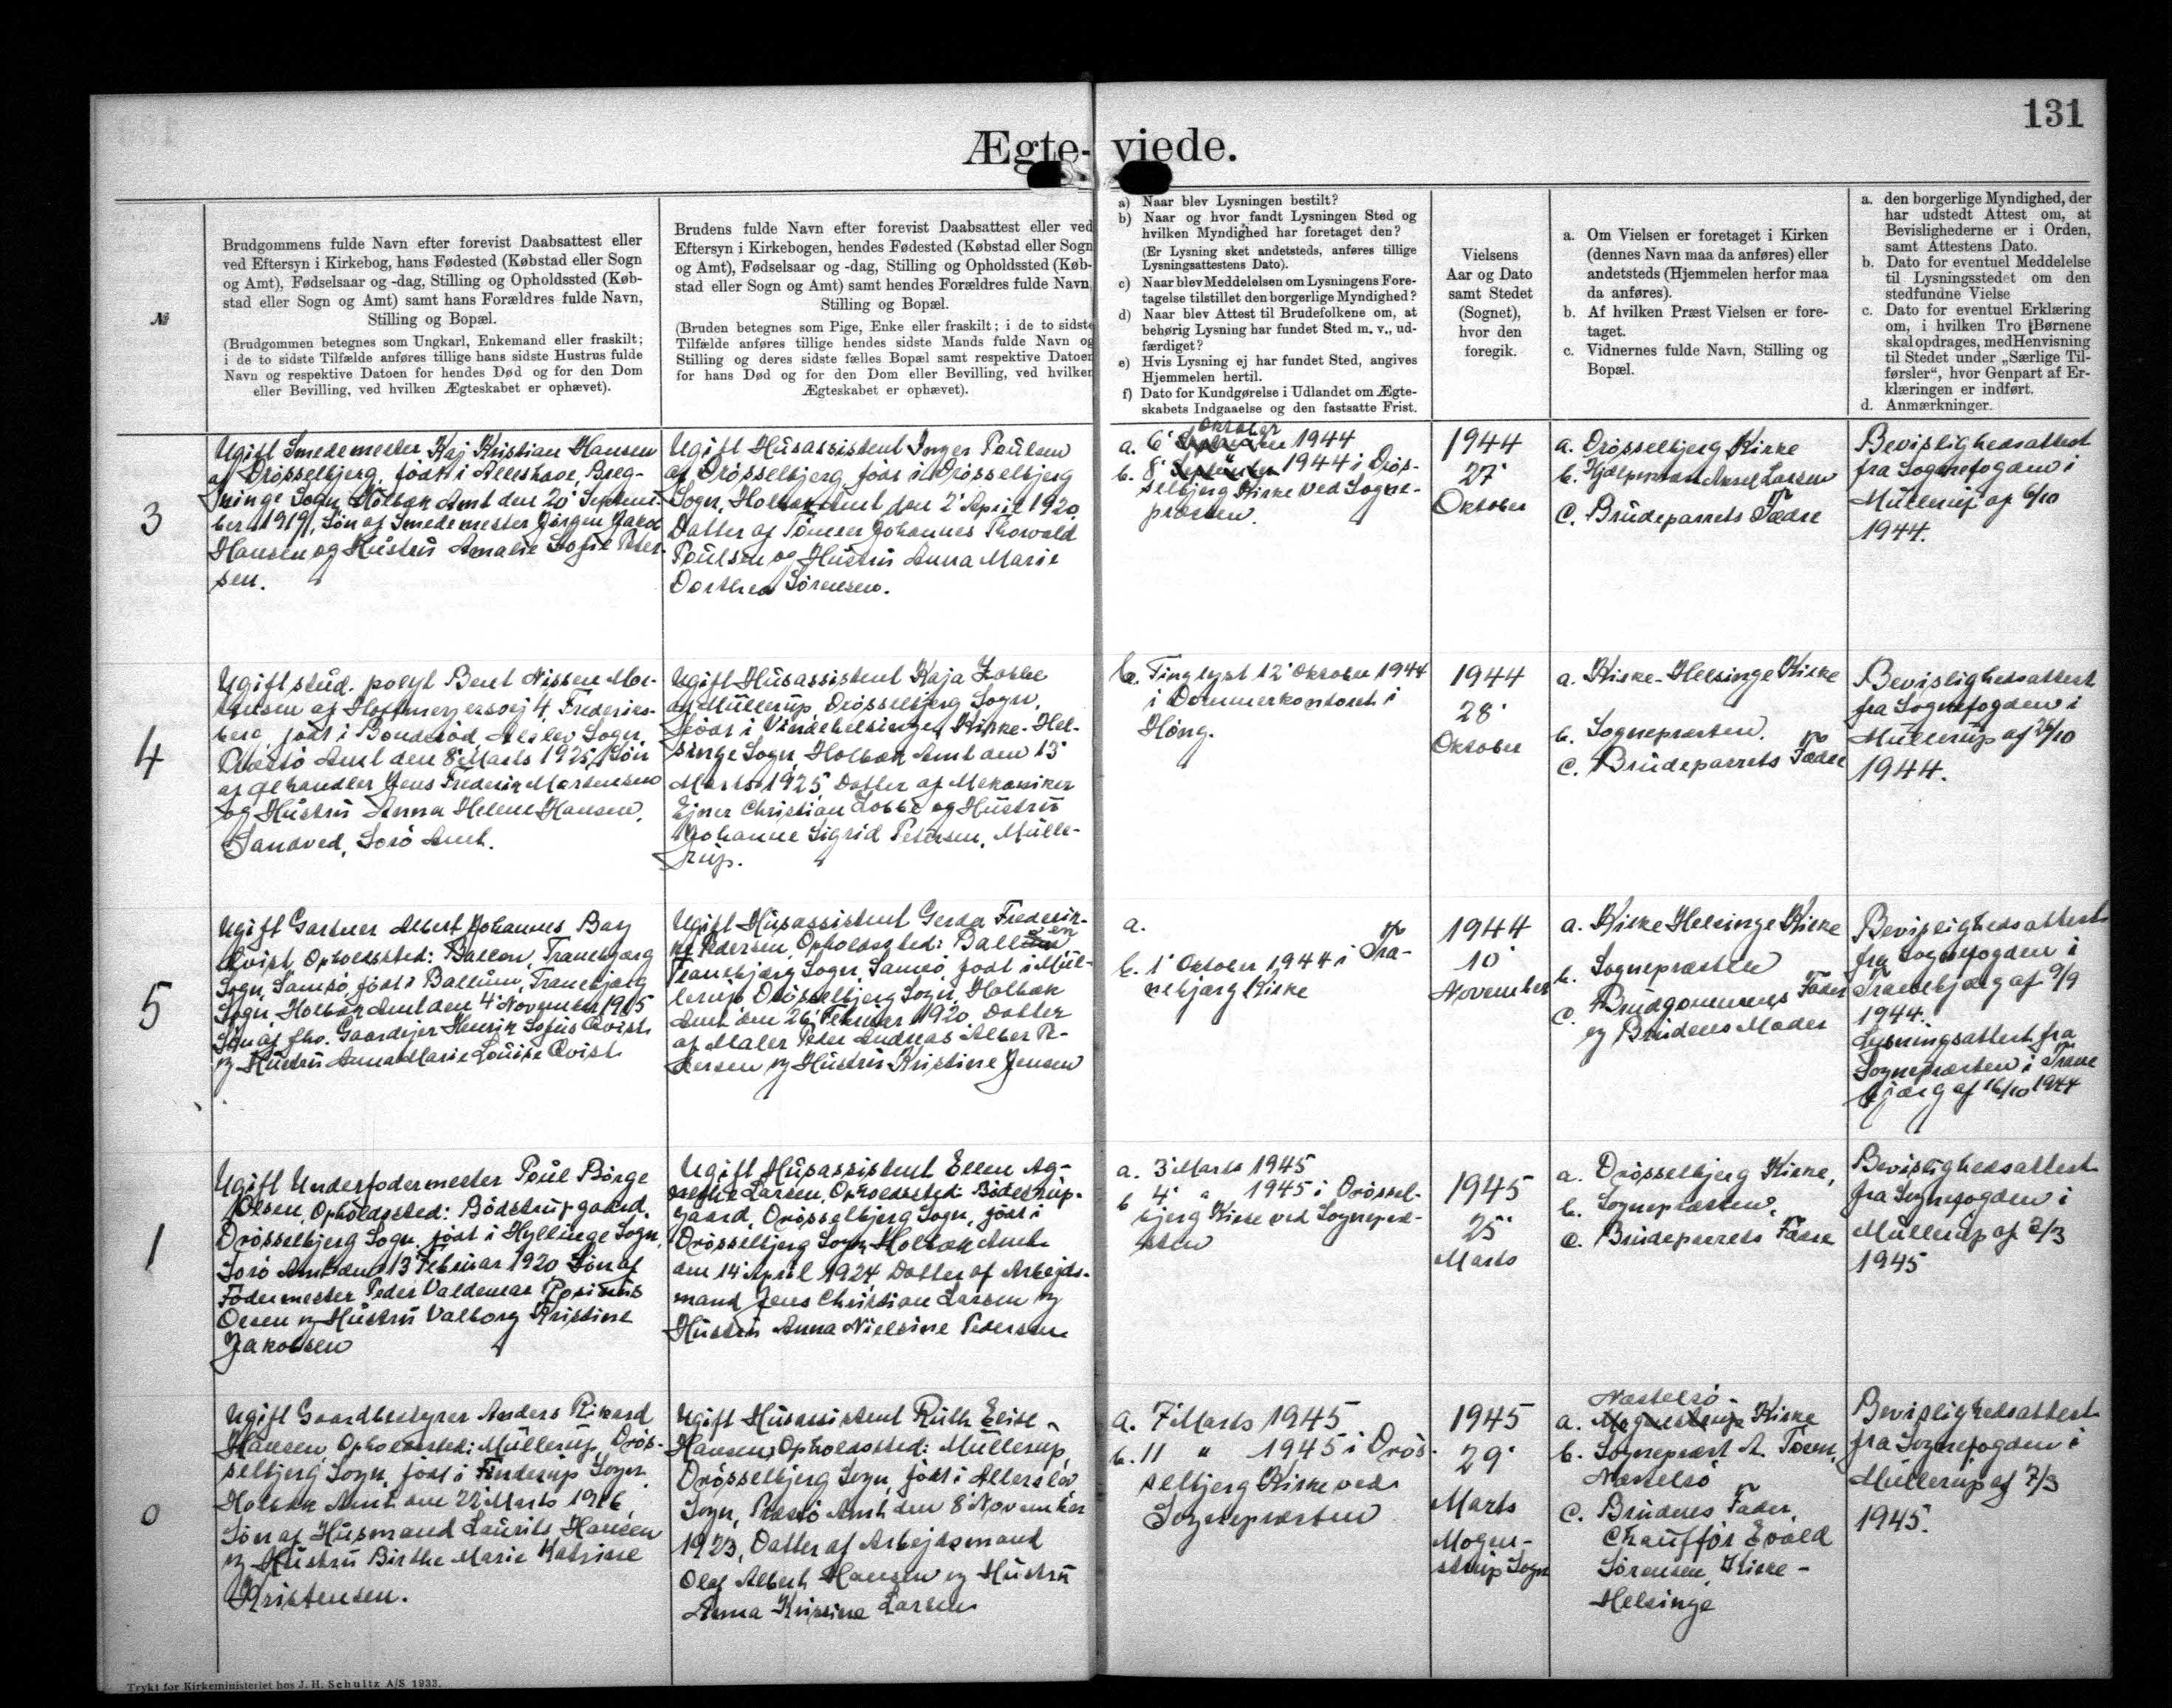 131
Ægte-viede.
№
Brudgommens fulde Navn efter forevist Daabsattest eller
ved Eftersyn i Kirkebog, hans Fødested (Købstad eller Sogn
og Amt), Fødselsaar og -dag, Stilling og Opholdssted (Køb-
stad eller Sogn og Amt) samt hans Forældres fulde Navn,
Stilling og Bopæl.
(Brudgommen betegnes som Ungkarl, Enkemand eller fraskilt;
i de to sidste Tilfælde anføres tillige hans sidste Hustrus fulde
Navn og respektive Datoen for hendes Død og for den Dom
eller Bevilling, ved hvilken Ægteskabet er ophævet).
Brudens fulde Navn efter forevist Daabsattest eller ved
Eftersyn i Kirkebogen, hendes Fødested (Købstad eller Sogn
og Amt), Fødselsaar og -dag, Stilling og Opholdssted (Køb-
stad eller Sogn og Amt) samt hendes Forældres fulde Navn,
Stilling og Bopæl.
(Bruden betegnes som Pige, Enke eller fraskilt; i de to sidste
Tilfælde anføres tillige hendes sidste Mands fulde Navn og
Stilling og deres sidste fælles Bopæl samt respektive Datoen
for hans Død og for den Dom eller Bevilling, ved hvilken
Ægteskabet er ophævet).
a) Naar blev Lysningen bestilt?
b) Naar og hvor fandt Lysningen Sted og
hvilken Myndighed har foretaget den?
(Er Lysning sket andetsteds, anføres tillige
Lysningsattestens Dato).
c) Naar blev Meddelelsen om Lysningens Fore-
tagelse tilstillet den borgerlige Myndighed?
d) Naar blev Attest til Brudefolkene om, at
behørig Lysning har fundet Sted m. v., ud-
færdiget?
e) Hvis Lysning ej har fundet Sted, angives
Hjemmelen hertil.
f) Dato for Kundgørelse i Udlandet om Ægte-
skabets Indgaaelse og den fastsatte Frist.
Vielsens
Aar og Dato
samt Stedet
(Sognet),
hvor den
foregik.
a. Om Vielsen er foretaget i Kirken
(dennes Navn maa da anføres) eller
andetsteds (Hjemmelen herfor maa
da anføres).
b. Af hvilken Præst Vielsen er fore-
taget.
c. Vidnernes fulde Navn, Stilling og
Bopæl.
a. den borgerlige Myndighed, der
har udstedt Attest om, at
Bevislighederne er i Orden,
samt Attestens Dato.
b. Dato for eventuel Meddelelse
til Lysningsstedet om den
stedfundne Vielse
c. Dato for eventuel Erklæring
om, i hvilken Tro Børnene
skal opdrages, med Henvisning
til Stedet under „Særlige Til-
førsler“, hvor Genpart af Er-
klæringen er indført.
d. Anmærkninger.
3
Ugift Smedemester Kaj Kristian Hansen
af Drösselbjerg, født i Alleshave, Breg-
ninge Sogn, Holbæk Amt den 20' Septem-
ber 1919, Søn af Smedemester Jørgen Jakob
Hansen og Hustrü Amalie Sofie Peter-
sen.
Ugift Hüsassistent Inger Poülsen
af Drösselbjerg, født i Drösselbjerg
Sogn, Holbæk Amt den 2' April 1920
Datter af Tømrer Johannes Thorvald
Poülsen og Hüstrü Anna Marie
Dorthea Sörensen.
a. 6' Oktober 1944
b. 8' 1944 i Drös-
selbjerg Kirke ved Sogne-
præsten.
1944
27'
Oktober
a. Drösselbjerg Kirke
b. Hjælpepræst Aksel Larsen
c. Brüdeparrets Fædre
Bevislighedsattest
fra Sognefogden i
Müllerüp af 6/10
1944.
4
Ugift stüd. polyt Bent Nissen Mor-
tensen af Hoffmeyersvej 4, Frederiks-
berg, født i Bonderöd, Sogn,
Præstö Amt den 8' Marts 1925, Søn
af handler Jens Frederik Mortensen
og Hüstrü Anna Helene Hansen,
Sandved, Sorö Amt.
Ugift Hüsassistent Kaja Lobbe
af Müllerüp, Drösselbjerg Sogn,
født i Vindehelsinge, Kirke-Hel-
singe Sogn, Holbæk Amt den 13'
Marts 1925, Datter af Mekaniker
Ejner Christian Lobbe og Hüstrü
Johanne Sigrid Petersen, Mülle-
rüp.
b. Tinglyst 12' Oktober 1944
i Dommerkontoret i
Höng.
1944
28'
Oktober
a. Kirke-Helsinge Kirke
b. Sognepræsten.
c. Brüdeparrets Fædre
Bevislighedsattest
fra Sognefogden i
Müllerüp af 26/10
1944.
5
Ugift Gartner Albert Johannes Bay
Qvist, Opholdssted: Ballen, Tranebjærg
Sogn, Samsö, født i Ballüm, Tranebjærg
Sogn, Holbæk Amt den 4' November 1915
Søn af fhv. Gaardejer Henrik Sofüs Qvist
og Hüstrü Anna Marie Loüise Qvist
Ugift Hüsassistent Gerda Frederik-
ke Pedersen, Opholdssted: Ballen
Tranebjærg Sogn, Samsö, født i Mül-
lerüp Drösselbjerg Sogn, Holbæk
Amt den 26' Febrüar 1920, Datter
af Maler Peter Andreas Albert Pe-
dersen og Hüstrü Kristine Jensen
a.
b. 1' Oktober 1944 i Tra-
nebjærg Kirke
1944
10'
November
a. Kirke Helsinge Kirke
b. Sognepræsten
c. Brüdgommens Fader
og Brüdens Moder
Bevislighedsattest
fra Sognefogden i
Tranebjærg af 9/9
1944.
Lysningsattest fra
Sognepræsten i Trane
bjærg af 16/10 1944
1
Ugift Underfodermester Poül Börge
Olsen, Opholdssted: Bödstrüpgaard,
Drösselbjerg Sogn, født i Hyllinge Sogn,
Sorö Amt den 13' Febrüar 1920 Søn af
Fodermester Peder Valdemar Rasmüs
Olsen og Hüstrü Valborg Kristine
Jakobsen
Ugift Hüsassistent Ellen Ag-
nethe Larsen, Opholdssted: Bödstrüp-
gaard, Drösselbjerg Sogn, født i
Drösselbjerg Sogn, Holbæk Amt
den 14' April 1924, Datter af Arbejds-
mand Jens Christian Larsen og
Hüstrü Anna Nielsine Pedersen
a. 3' Marts 1945
b 4' " 1945 i Drössel-
bjerg Kirke ved Sognepræ-
sten
1945
25'
Marts
a. Drösselbjerg Kirke,
b. Sognepræsten.
c. Brüdeparrets Fædre
Bevislighedsattest
fra Sognefogden i
Müllerüp af 2/3
1945
0
Ugift Gaardbestyrer Anders Rikard
Hansen, Opholdssted: Müllerüp, Drös-
selbjerg Sogn, født i Finderüp Sogn
Holbæk Amt den 22' Marts 1916,
Søn af Hüsmand Laürits Hansen
og Hüstrü Birthe Marie Katrine
Kristensen.
Ugift Hüsassistent Rüth Elise
Hansen, Opholdssted: Müllerüp,
Drösselbjerg Sogn, født i Allerslev
Sogn, Præstö Amt den 8' November
1923, Datter af Arbejdsmand
Olaf Albert Hansen og Hüstrü
Anna Kristine Larsen
a. 7' Marts 1945
b. 11 " 1945 i Drös-
selbjerg Kirke ved
Sognepræsten
1945
29'
Marts
Mogen-
strüp Sogn
Næstelsö-
a. Mogenstrüp Kirke
b. Sognepræst A.
Næstelsö
c. Brüdens Fader,
Chaufför Evald
Sörensen, Kirke-
Helsinge
Bevislighedsattest
fra Sognefogden i
Müllerüp af 7/3
1945.
Trykt for Kirkeministeriet hos J. H. Schultz A/S 1933.